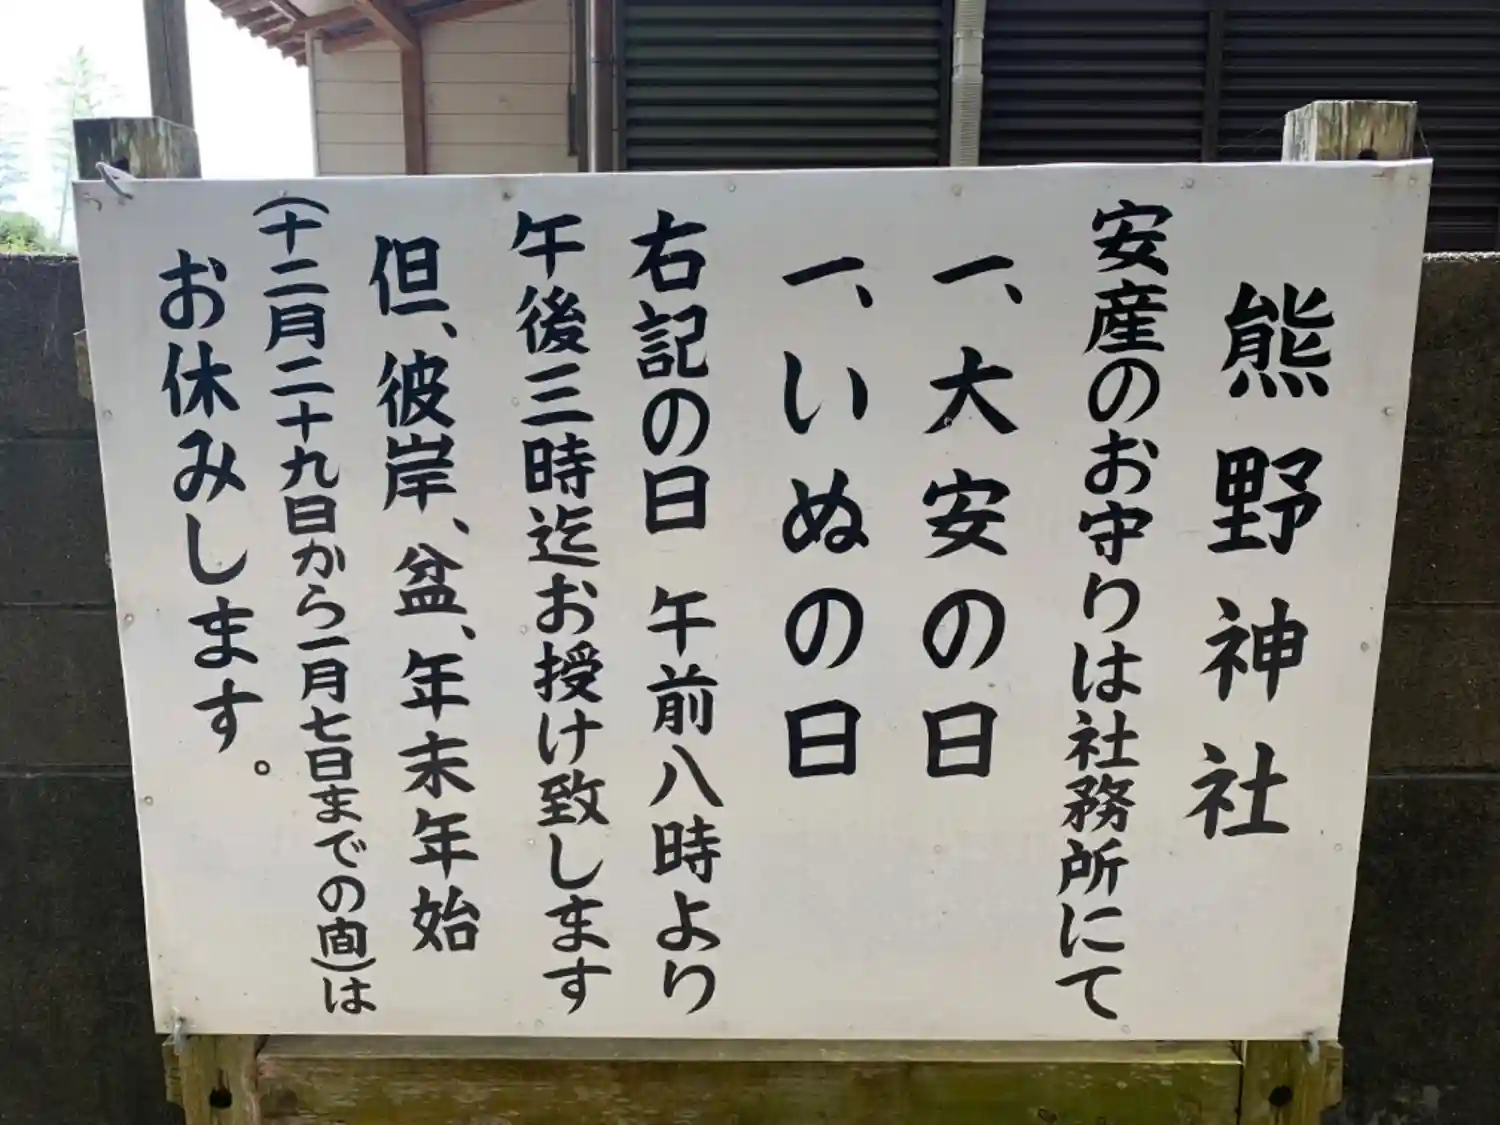 熊野神社
安産のお守りは社務所にて
一、大安の日
一、いぬの日
右記の日 午前八時より
午後三時迄お授け致します
但、彼岸、盆、年末年始
(十二月二十九日から一月七日までの間)は
お休みします。